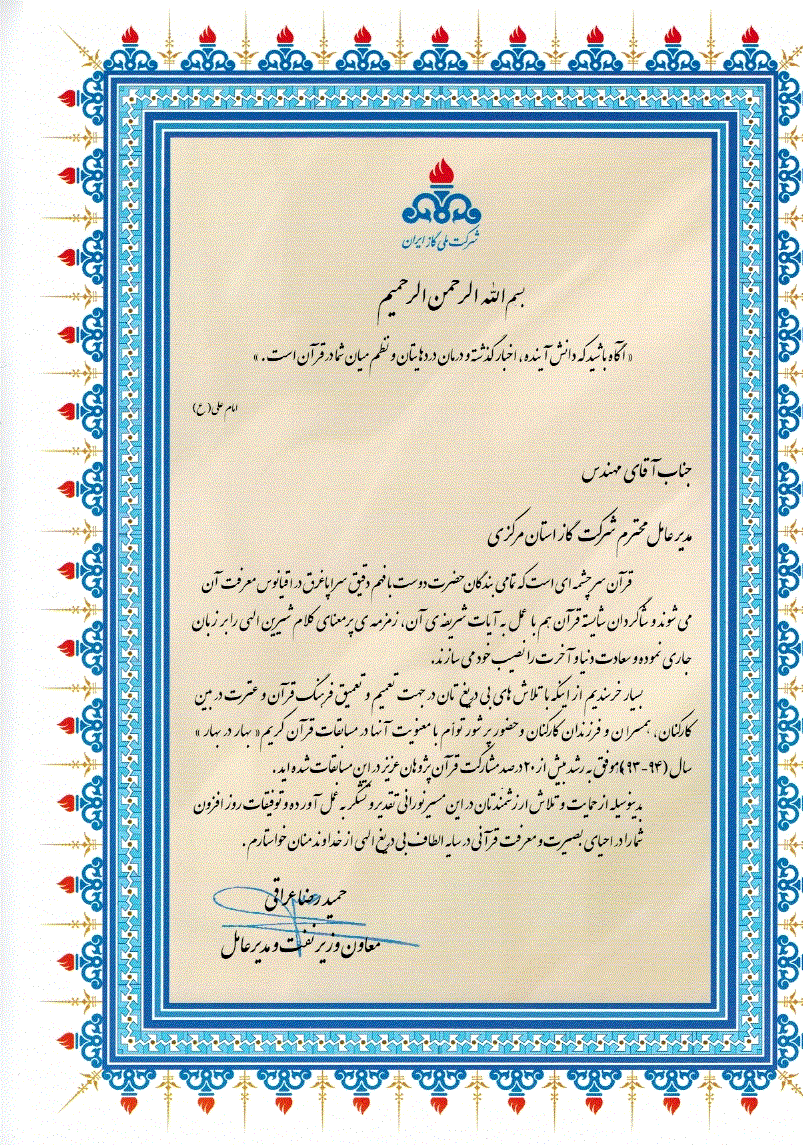 شرکت ملی گاز ایران
بسم الله الرحمن الرحیم
« آگاه باشید که دانش آینده، اخبار گذشته و درمان دردهایتان و نظم میان شما در قرآن است. »
امام علی (ع)
جناب آقای مهندس
مدیرعامل محترم شرکت گاز استان مرکزی
قرآن سرچشمه ای است که تمامی بندگان حضرت دوست با فهم دقیق سراپا غرق در اقیانوس معرفت آن
می شوند و شاگردان شایسته قرآن هم با عمل به آیات شریفه ی آن، زمزمه ی پر معنای کلام شیرین الهی را بر زبان
جاری نموده و سعادت دنیا و آخرت را نصیب خود می سازند.
بسیار خرسندیم از اینکه با تلاش های بی دریغ تان در جهت تعمیم و تعمیق فرهنگ قرآن و عترت در بین
کارکنان، همسران و فرزندان کارکنان و حضور پر شور توأم با معنویت آنها در مسابقات قرآن کریم « بهار در بهار »
سال (۹۴-۹۳) موفق به رشد بیش از ۲۰ درصد مشارکت قرآن پژوهان عزیز در این مسابقات شده اید.
بدینوسیله از حمایت و تلاش ارزشمندتان در این مسیر نورانی تقدیر و تشکر به عمل آورده و توفیقات روز افزون
شما را در احیای بصیرت و معرفت قرآنی در سایه الطاف بی دریغ الهی از خداوند منان خواستارم.
حمید رضا عراقی
معاون وزیر نفت و مدیرعامل